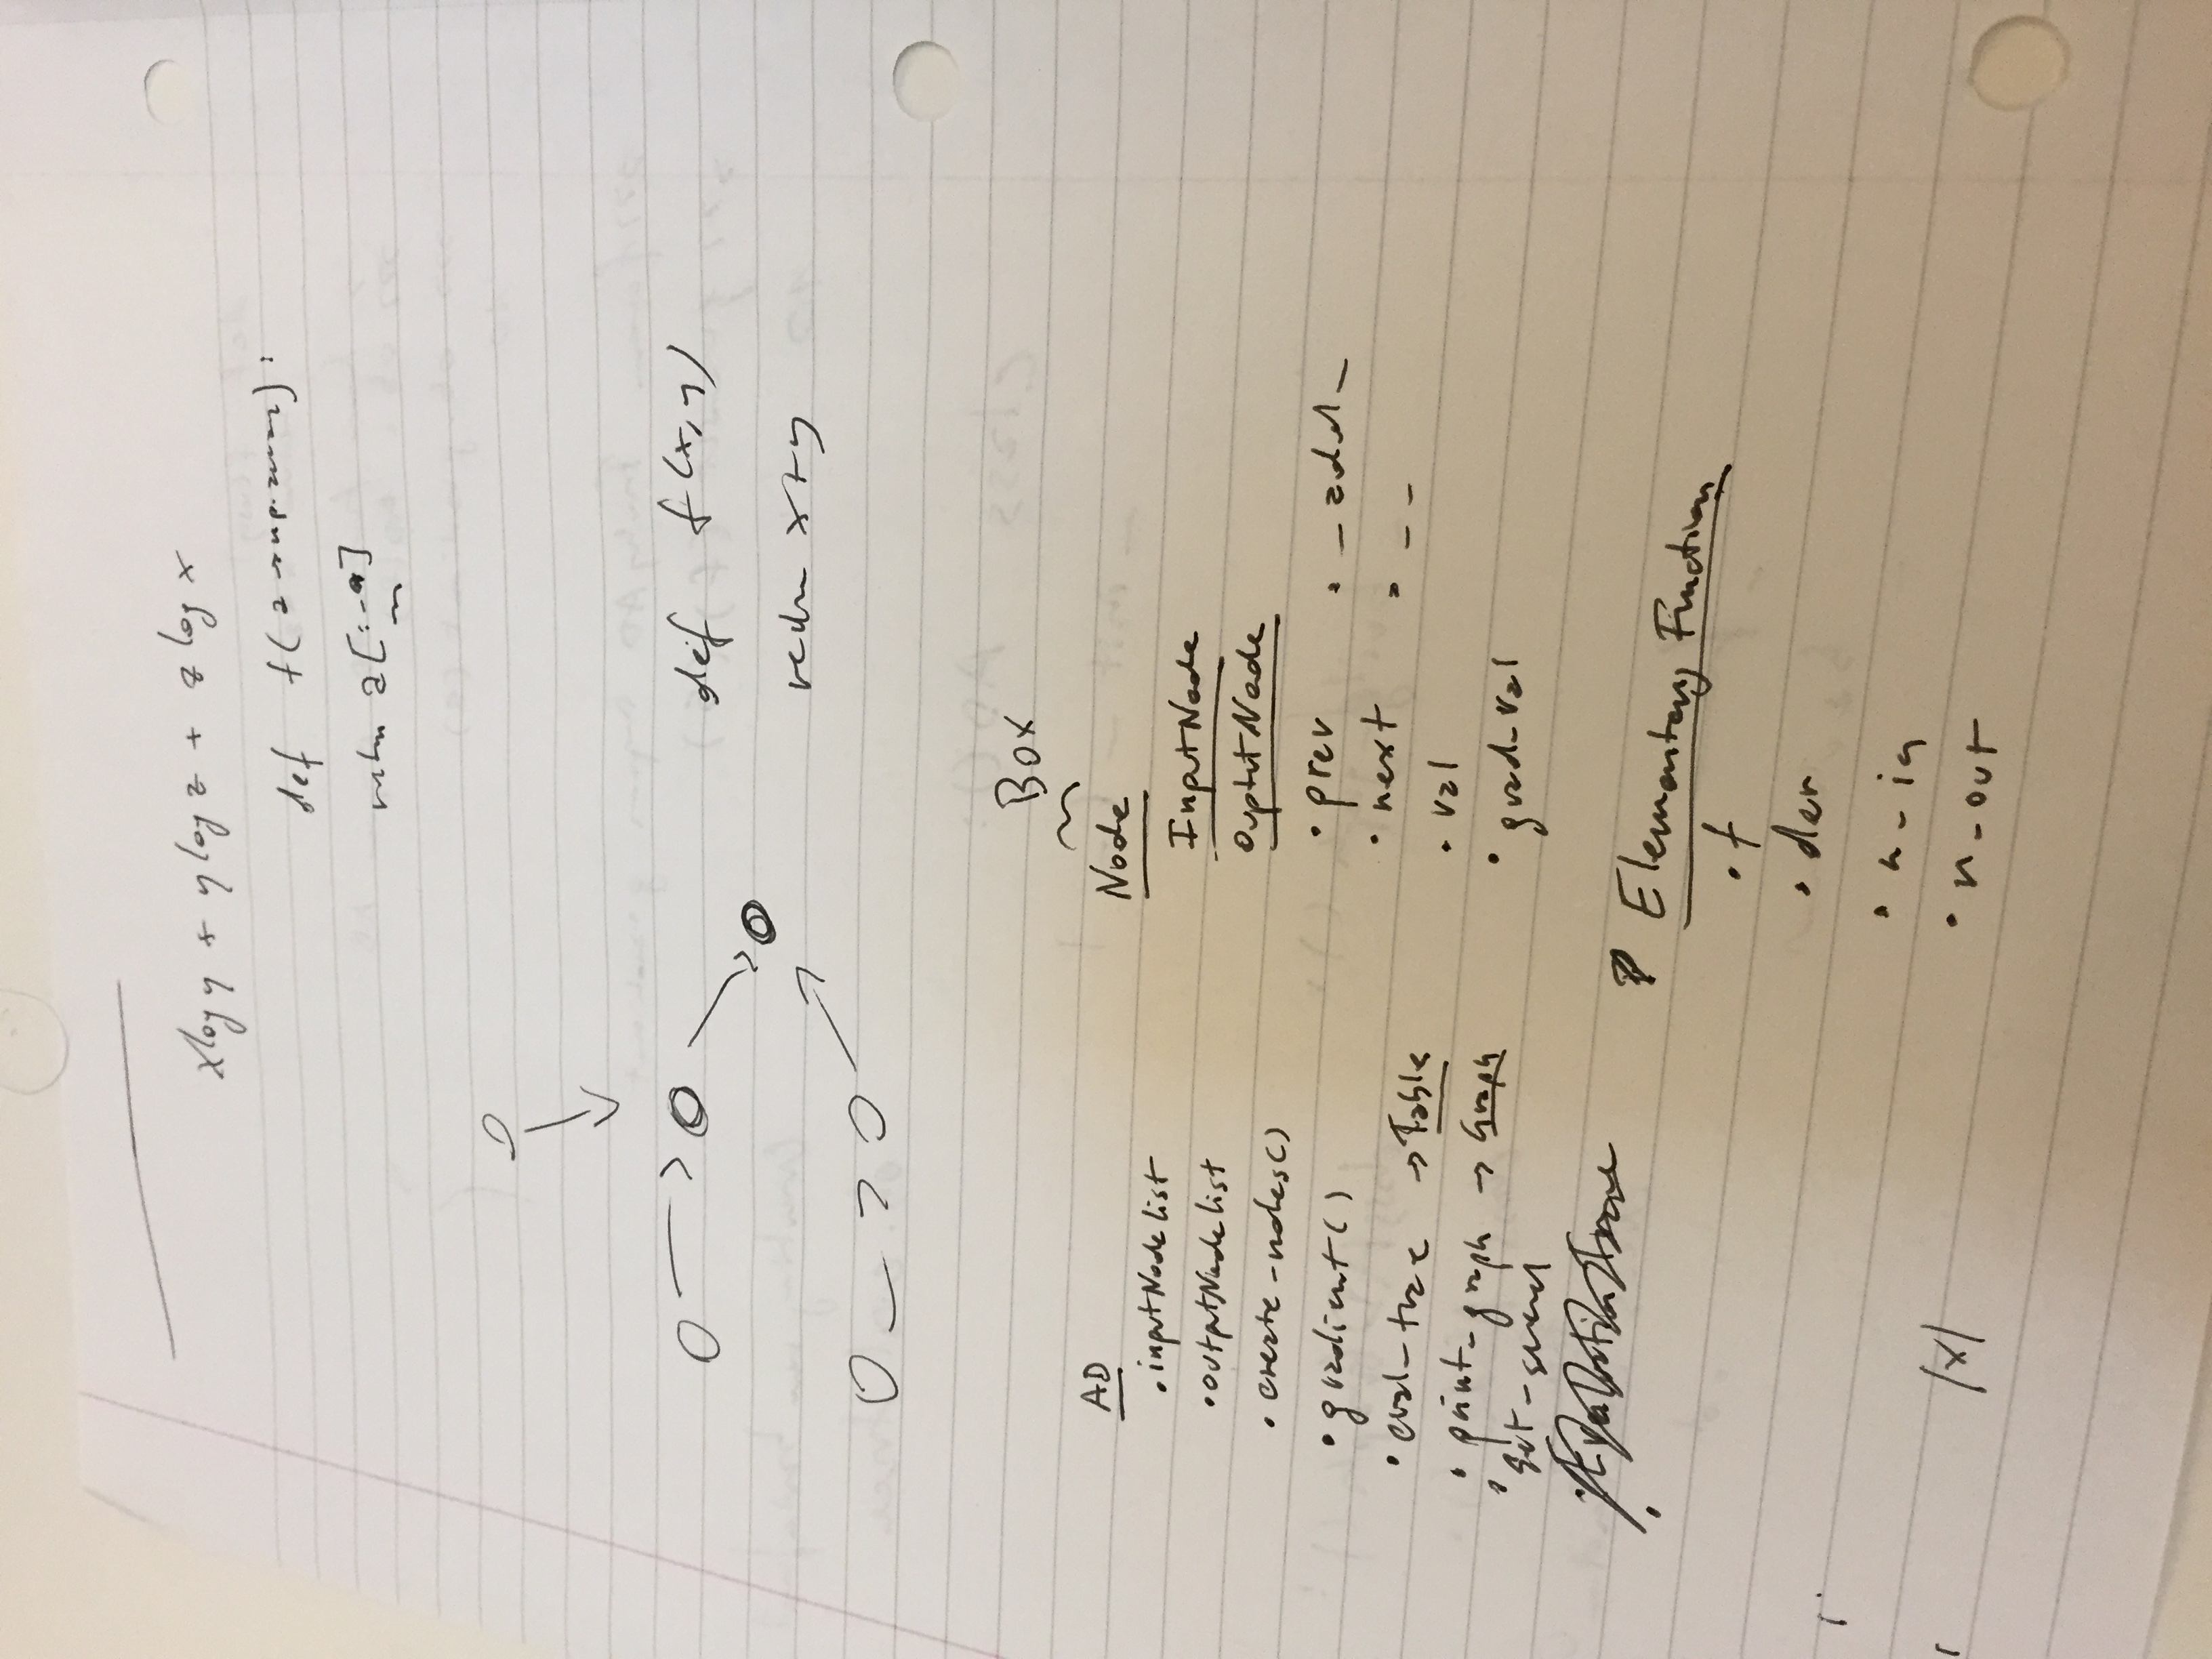 xlogy + ylogz + zlogx
def f(a → np.array):
return a[:-a]
def f(x,y)
return x+y
Box
AD
.inputNodelist
.outputNodelist
.create-nodes()
.gradient()
.eval_trace → Table
.print_graph → Graph
.set-
Node
InputNode
OuptutNode
.prev
. _add_
.next
. _ _
.val
.grad_val
Elementary Function
.f
.der
.n_in
.n_out
|x|